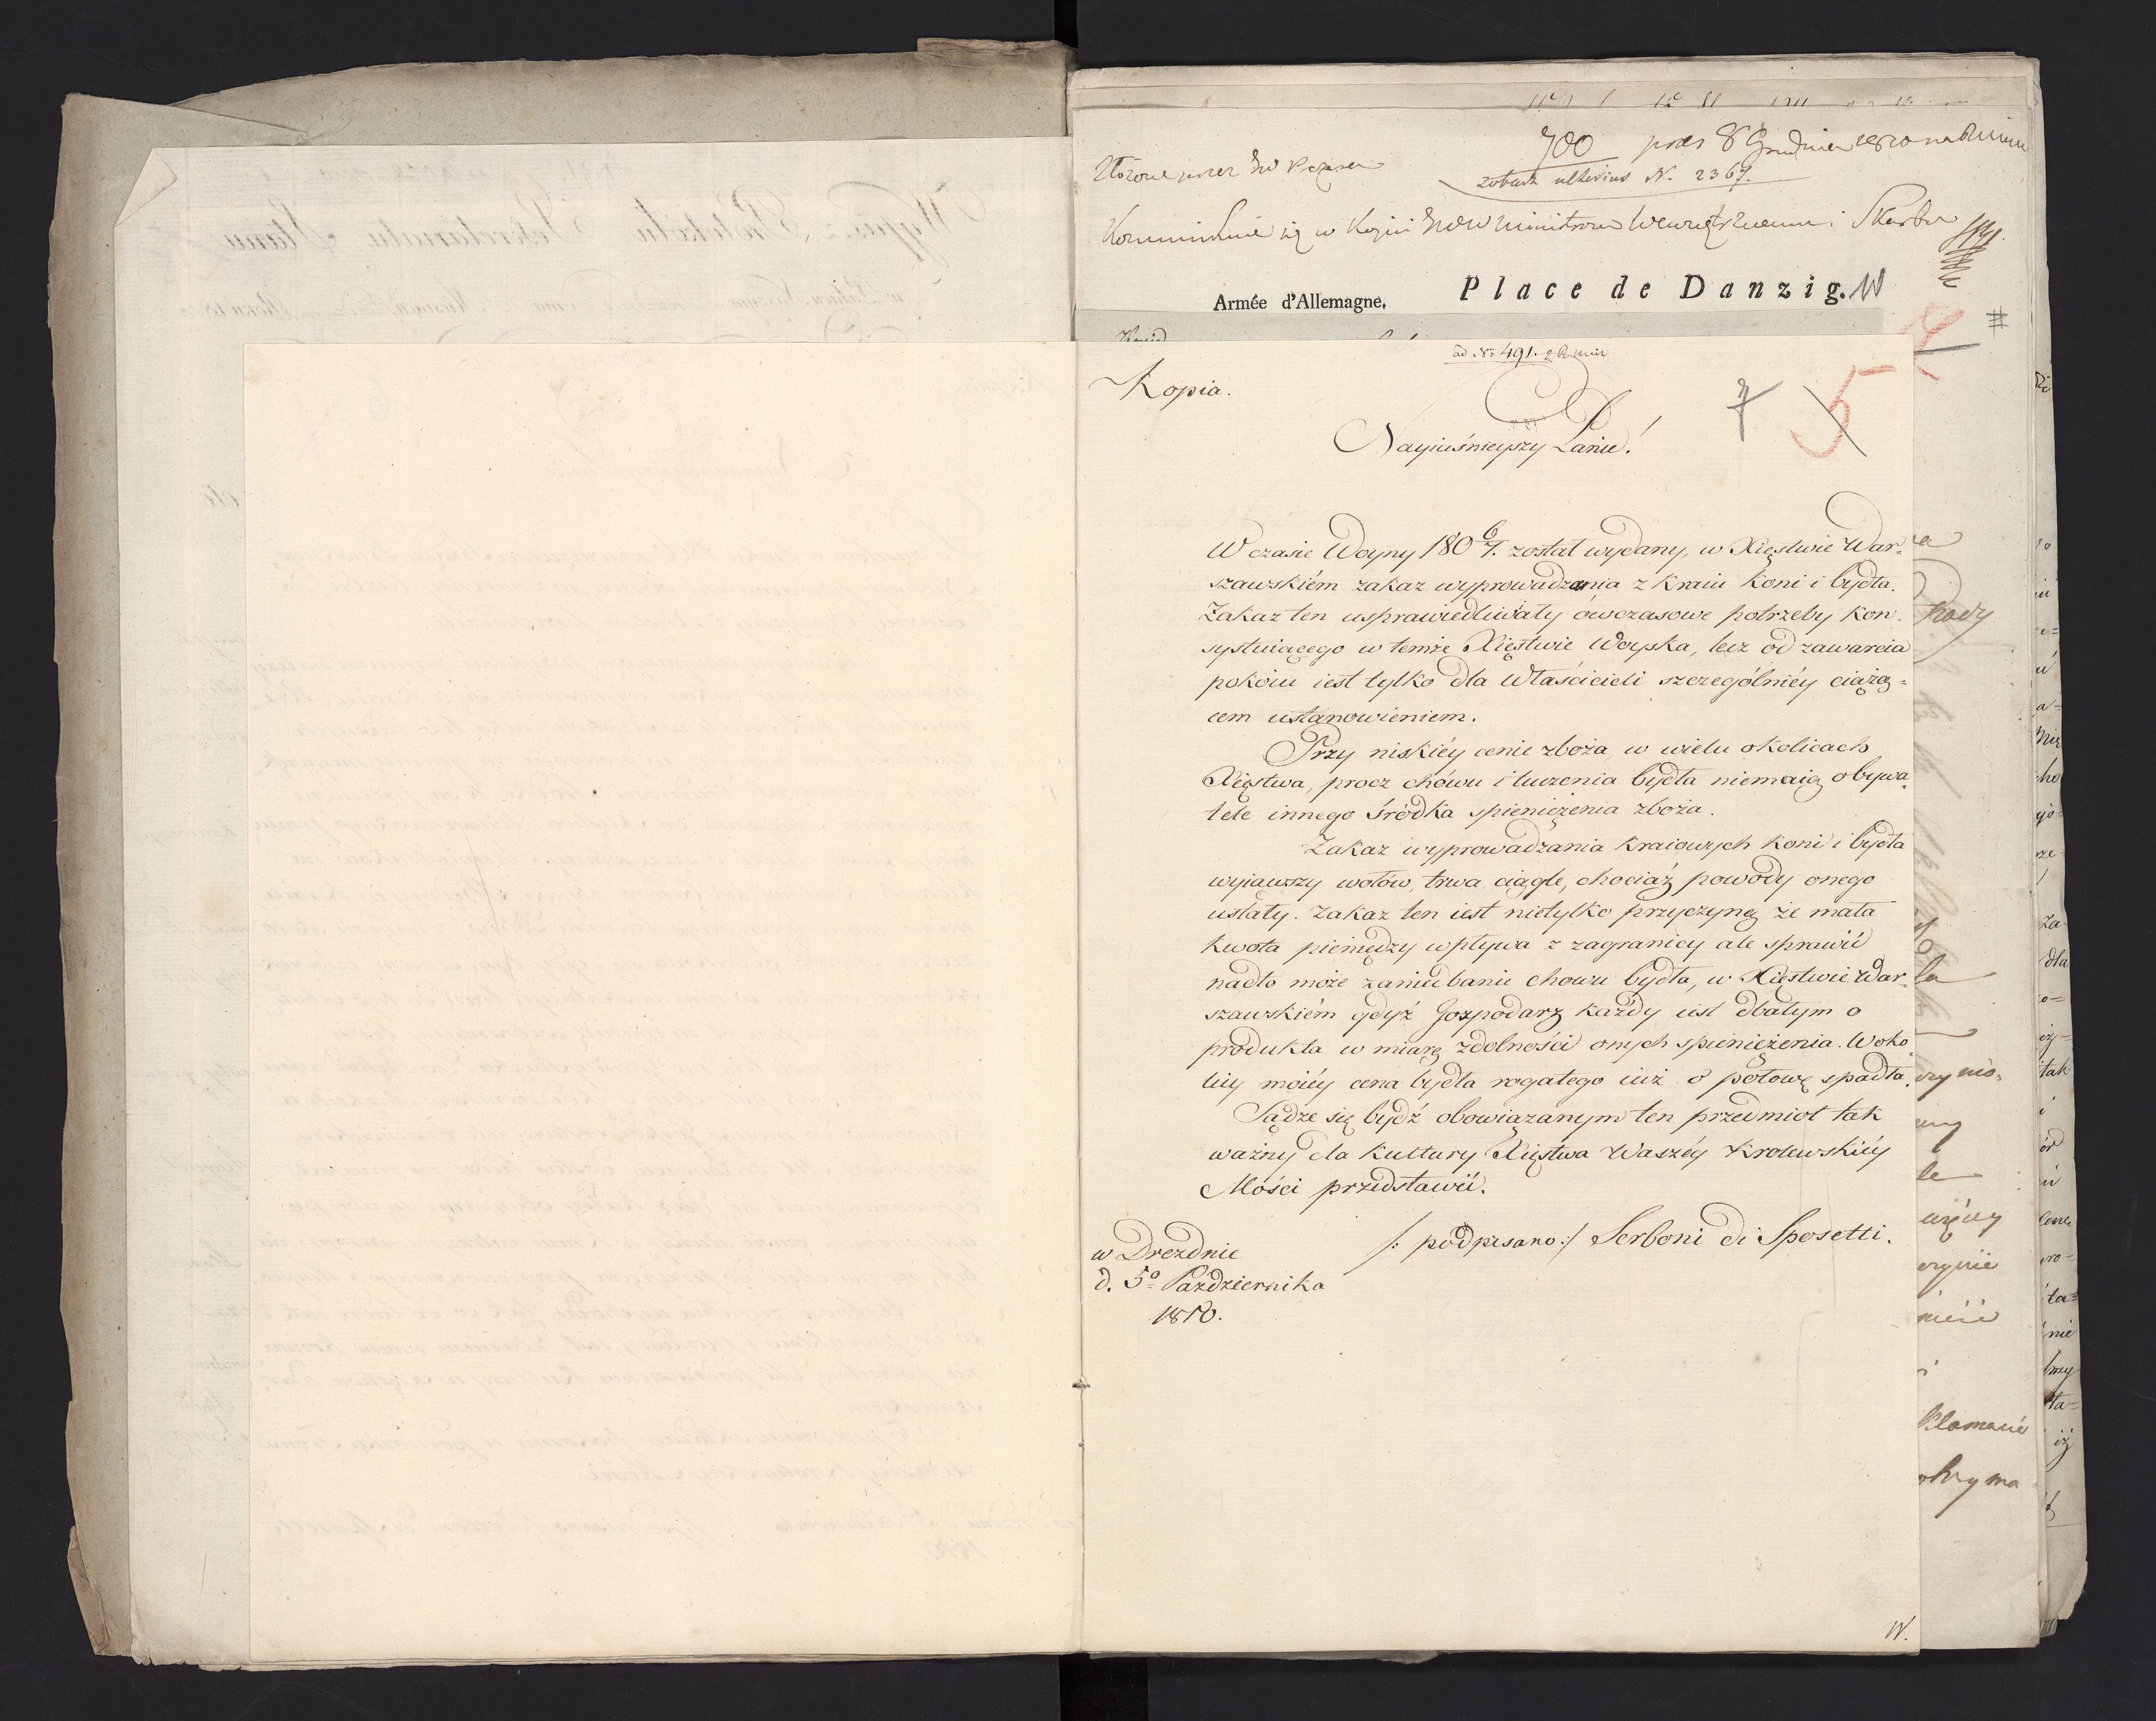 700 pres 8 Grudnia
Złożone przez JW Prezesa
zobacz ulterius N. 2367.
Kommunikuie się w Kopii JWW Ministrom Wewnętrznemu i Skarbu
Armée d'Allemagne. Place de Danzig. W
#
ad Nr 491.
Kopia.
7 5
Nayiaśnieyszy Panie!
W czasie Woyny 180 6/7. został wydany, w Xięstwie War-
szawskiém zakaz wyprowadzania z kraiu koni i bydła.
Zakaz ten usprawiedliwiały ówczasowe potrzeby kon-
systuiącego w temże Xięstwie Woyska, lecz od zawarcia
pokoiu iest tylko dla Właścicieli szczególniéy ciążą=
cem ustanowieniem.
Przy niskiéy cenie zboża, w wielu okolicach
Xięstwa, procz chówu i tuczenia bydła niemaią obywa=
tele innego śródka spieniężenia zboża.
Zakaz wyprowadzania kraiowych koni i bydła
wyiąwszy wołów, trwa ciągle, chociaż powody onego
ustały. Zakaz ten iest nietylko przyczyną że mała
kwota pieniędzy wpływa z zagranicy ale sprawić
nadto może zaniedbanie chowu bydła, w Xięstwie War-
szawskiém gdyż Gospodarz każdy iest dbałym o
produkta w miarę zdolności onych spieniężenia. W oko-
licy moiéy cena bydła rogatego iuż o połowę spadła.
Sądze się bydź obowiązanym ten przedmiot tak
ważny dla kultury Xięstwa Waszéy Krolewskiéy
Mości przedstawić.
/: podpisano :/ Serboni di Sposetti.
w Dreznie
d. 5o Października
1810.
W.